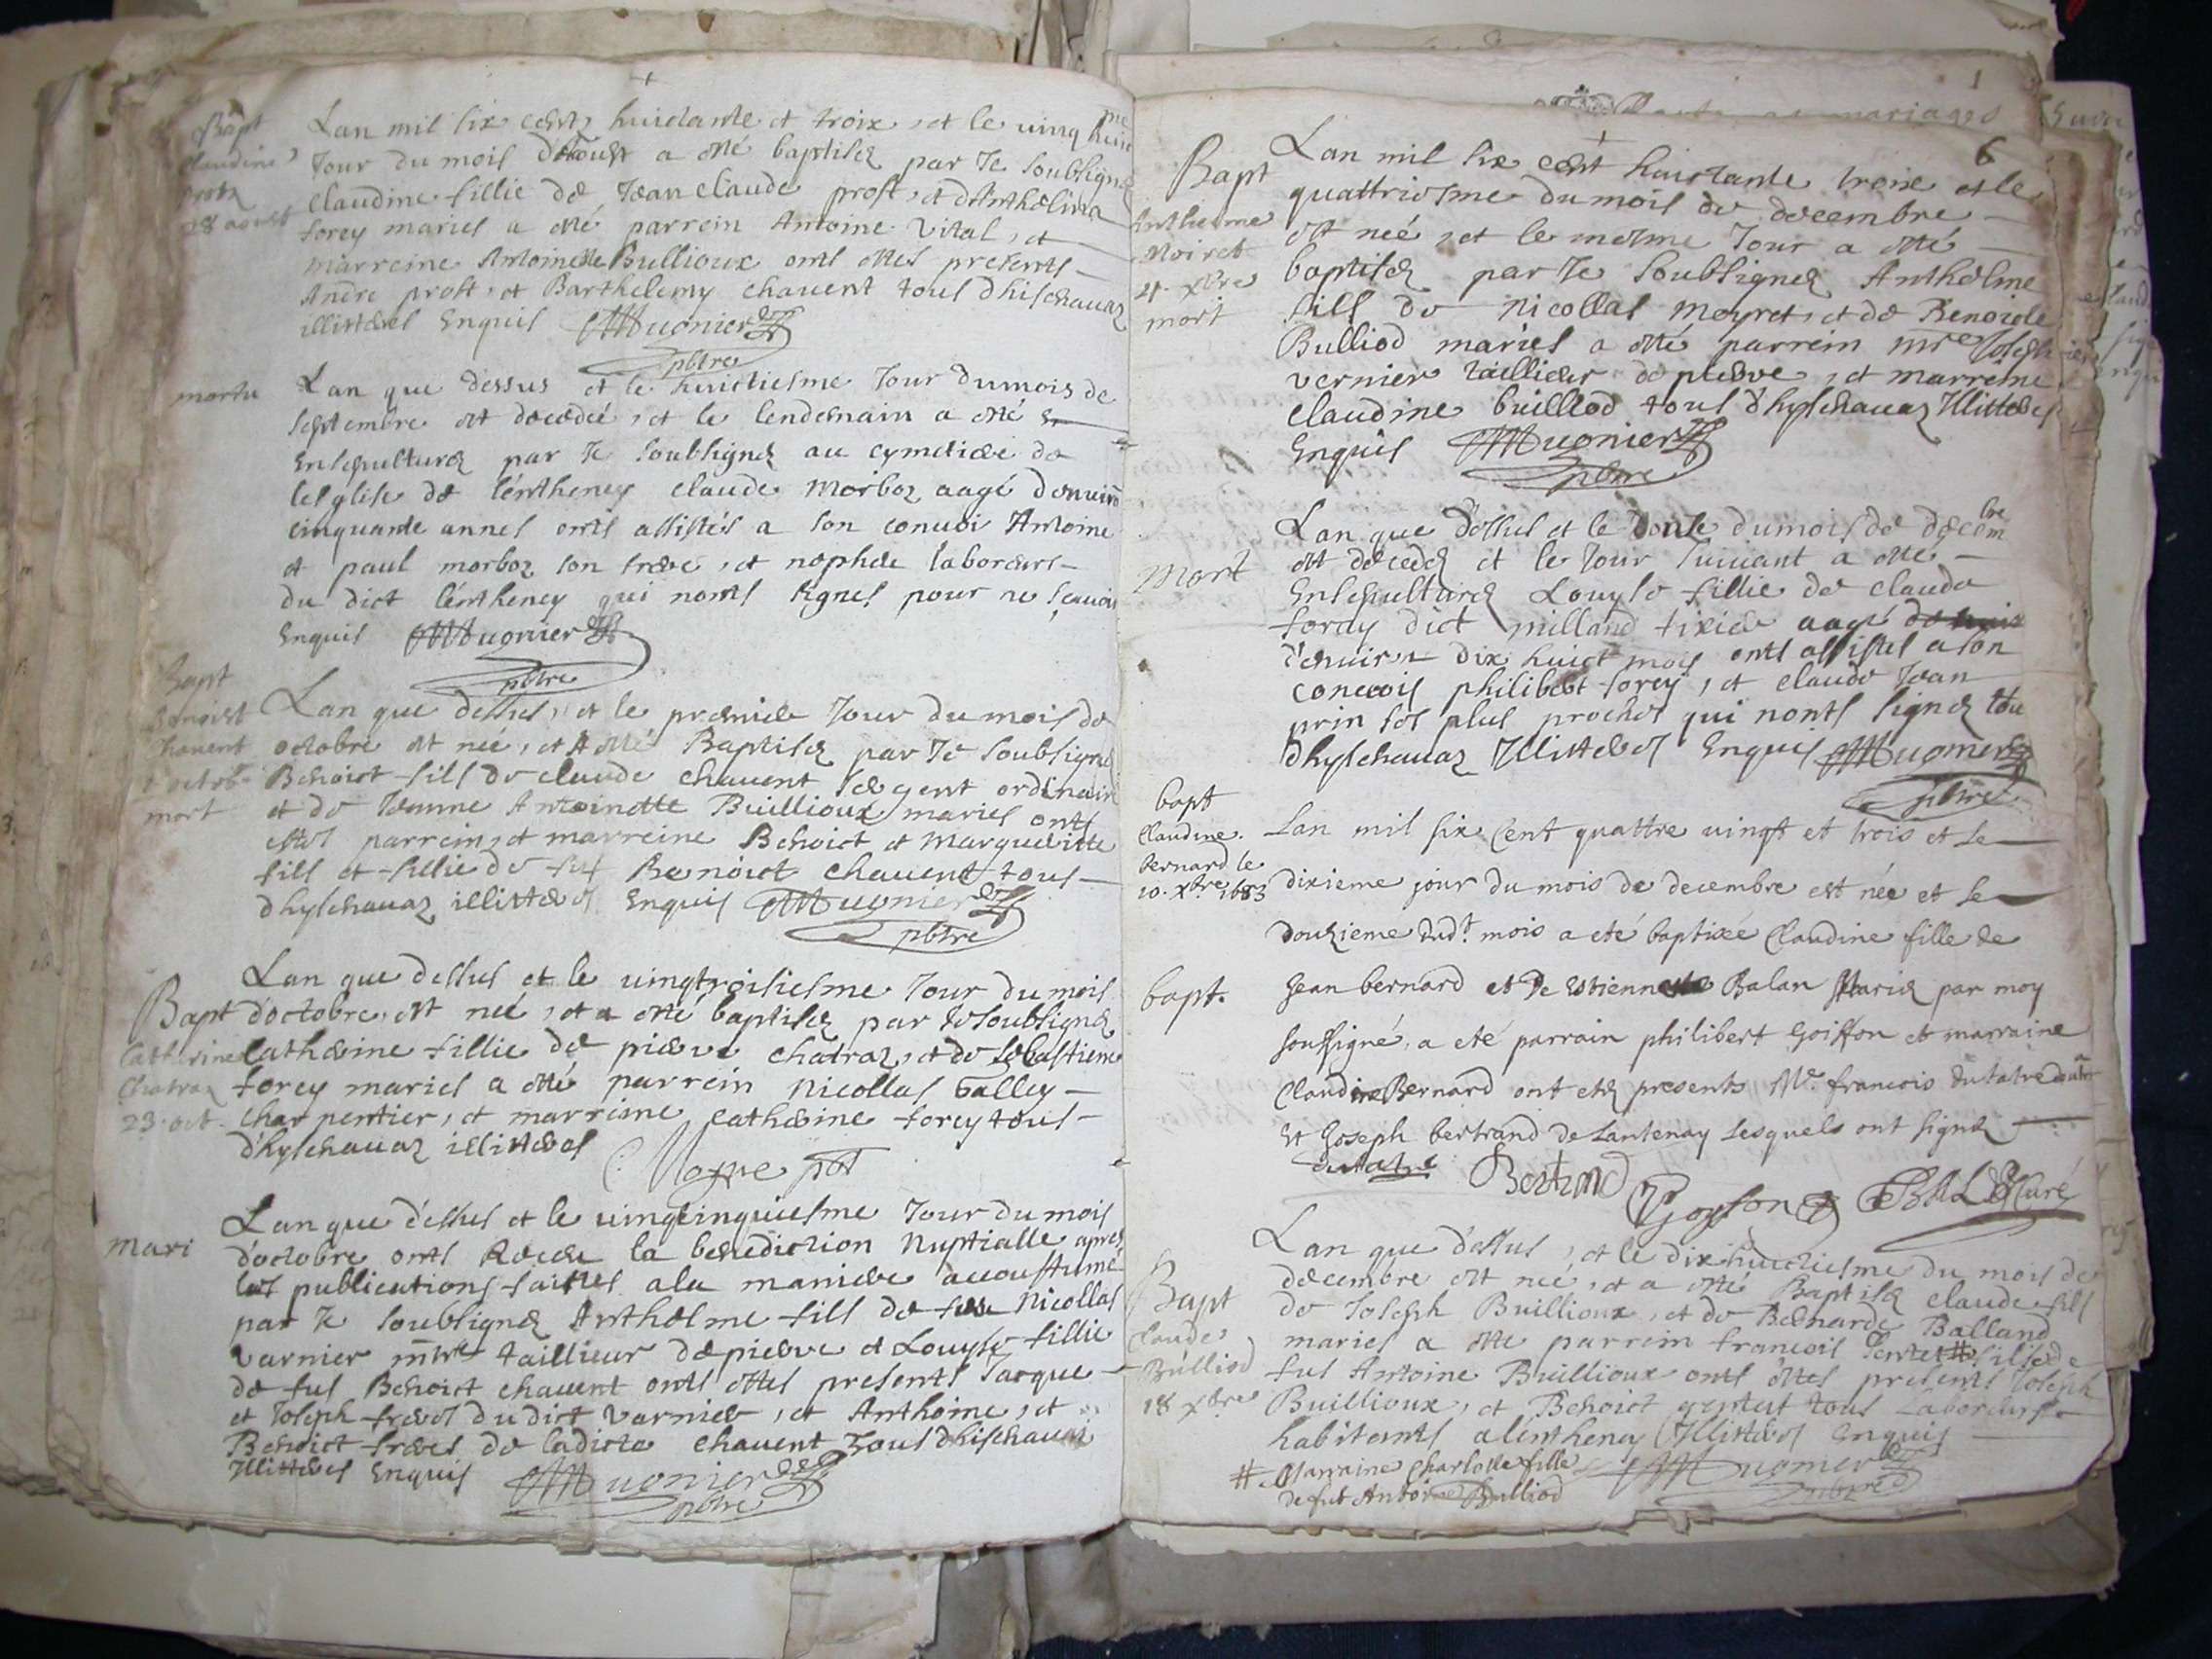 Bapt
Claudine
prost
28 aoust
Lan mil six cents huictante et troix, et le uing huict me
Jour du mois daoust a esté baptisez par Je soubsignez
Claudine fillie de Jean Claude prost, et danthelma
forey mariés a esté parrein Antoine Vital, et
marreine Antoinette Bullioux onts estés presents
Andre prost, et Barthelemy chauent tous dhischauaz
illitteres Enquis Mugnier
pbtre
mortu
Lan que dessus et le huictiesme Jour du mois de
septembre est decedeé, et le lendemain a esté
Ensepulturez par Je soubsignez au cymetiere de
leglise de lentheney claude Morboz aagé denuiron
cinquante annes onts assistés a son conuoi Antoine
et paul morboz son frere, et nepheu laboreurs
du dict lentheney qui nonts signes pour ne scauoir
Enquis Mugnier
pbtre
Bapt
Benoist
Chauent
1 octob
mort
Lan que dessus, et le premier Jour du mois de
octobre est neé, et A esté Baptisez par Je soubsignez
Benoict fils de claude chauent sergent ordinaire
et de Jeanne Antoinette Buillioux mariés onts
estes parrein, et marreine Benoict et Margueritte
fils et fillie de fut Benoict chauent tous
dhyschauaz illitteres Enquis Mugnier
pbtre
Lan que dessus et le uingtroisiesme Jour du mois
Bapt
Catherine
Chatraz
23. oct.
doctobre, est neé, et a esté baptisez par Je soubsignez
Catherine fillie de pierre chatraz, et de sebastienne
forey mariés a esté parrein Nicollas Galley
charpentier, et marreine Catherine forey tous
dhyschauaz illitteres
pbt
mari
Lan que dessus et le uingcinquiesme Jour du mois
doctobre onts Receu la benediction Nuptialle apres
les publications faittes a la maniere accoustumé
par Je soubsignez Anthelme fils de feu Nicollas
varnier mtre taillieur de pierre et Louyse fillie
de fut Benoict chauent onts estés presents Jacque
et Joseph freres du dict varnier, et Anthoine, et
Benoict freres de ladicte chauent Tous dhischauaz
Illitteres Enquis Mugnier
pbtre
1
mariages
6
Bapt
Anthelme
Moiret
4. xbre
mort
Lan mil six cent huictante troix et le
quattriesme du mois de decembre
est neé, et le mesme Jour a esté
baptisez par Je soubsignez Anthelme
fils de Nicollas Moyret, et de Benoiste
Bulliod mariés a esté parrein mre Joseph
vernier tallieur de pierre, et marreine
Claudine builliod tous dhyschauaz Illitteres
Enquis Mugnier
pbtre
Mort
Lan que dessus et le douse du mois de decembre
est decedez et le Jour suiuant a esté
Ensepulturez Louyse fillie de claude
foray dict milland tixier aagé
denuiron dix huict mois onts assistes a son
conuois philibert forey, et claude Jean
prin ses plus proches qui nonts signez tous
dhyschauaz Illitteres Enquis Mugnier
pbtre
bapt
Claudine
bernard le
10. Xbre 1683
Lan mil six Cent quattre uingt et trois et le
dixieme jour du mois de decembre est née et le
douzieme dudt. mois a eté baptizée Claudine fille de
bapt.
Jean bernard et De Estiennette Balan Mariez par moy
soussigné, a eté parrain philibert Goiffon et marraine
Claudine Bernard ont etez presents Mr. francois dutatre
Et Joseph bertrand de Lantenay Lesquels ont signez
dutatre Bertrand Goyfon BALL Curé
Bapt
Claude
Bulliod
18 xbre
Lan que dessus, et le dixhuictiesme du mois de
decembre est neé, et a esté Baptisez claude fils
de Joseph Buillioux, et de Bernarde Balland
mariés a esté parrein francois Gentet # fils de
fut Antoine Buillioux onts estes presents Joseph
Buillioux, et Benoict gentet tous Laboreurs
habitants a lentheney Illitteres Enquis
# Marraine Charlotte fille Mugnier
de fut Antoine Bulliod pbtre